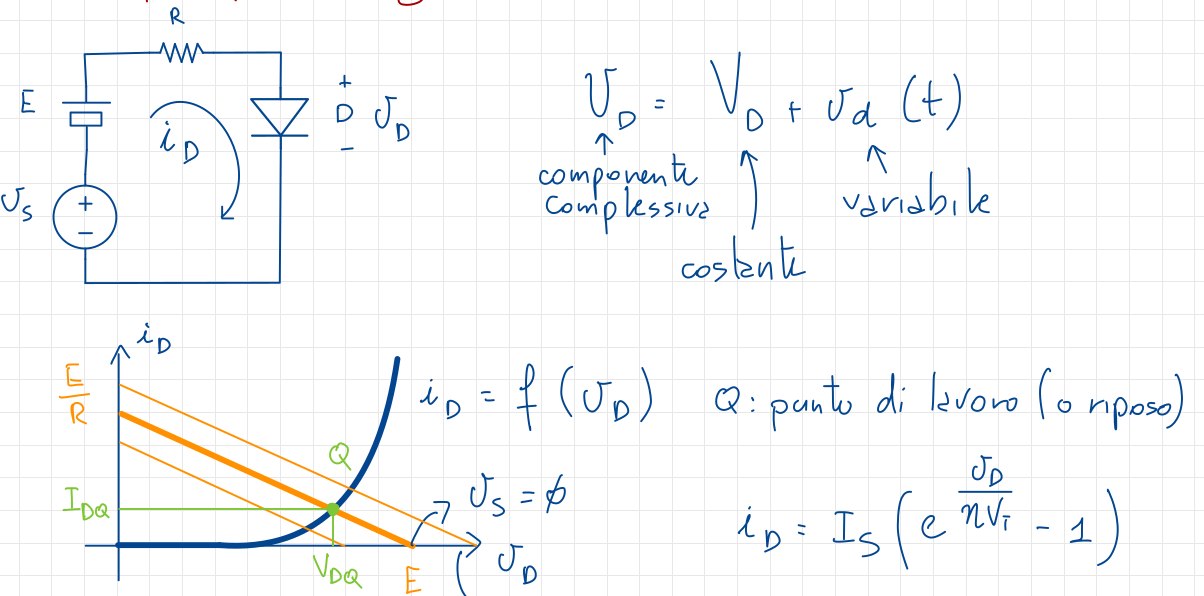 R
E
i_D
+
D
−
v_D
v_S
+
−
v_D = V_D + v_d (t)
componente
complessiva
costante
variabile
i_D
E/R
I_DQ
Q
V_DQ
E
v_D
v_S = ϕ
i_D = f (v_D)
Q: punto di lavoro (o riposo)
i_D = I_S (e^(v_D/nV_T) − 1)